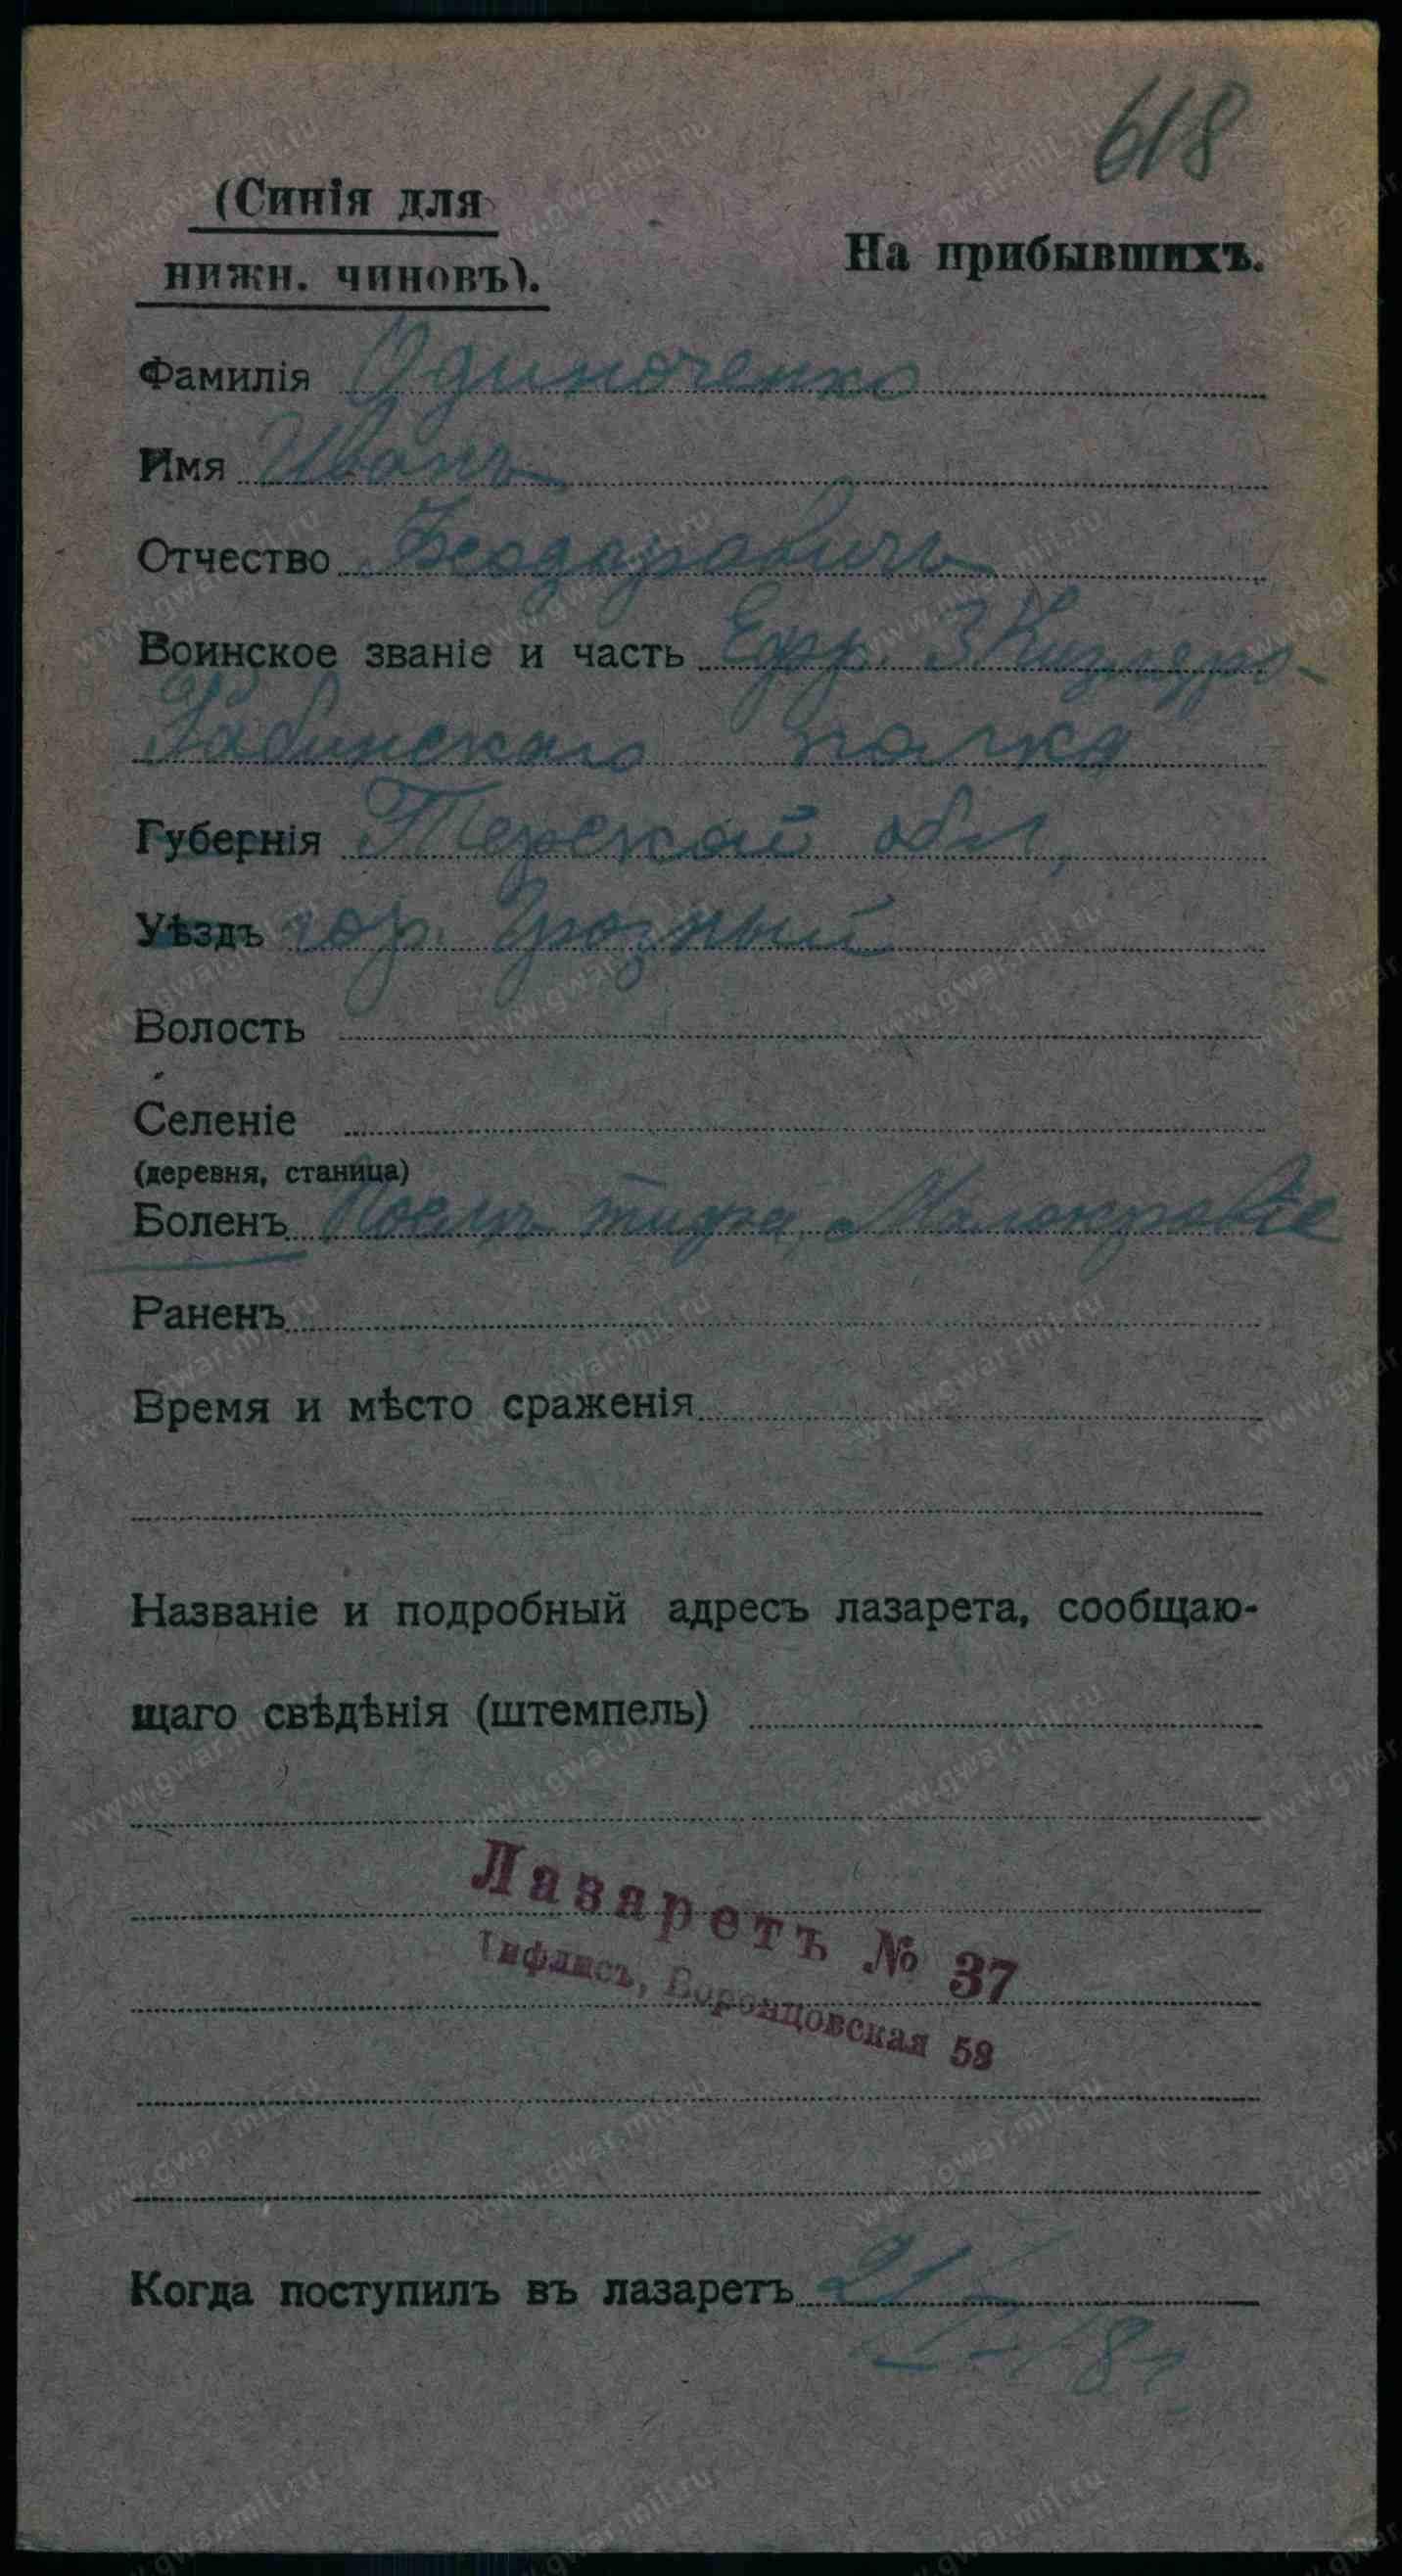 618
(Синія для
нижн. чиновъ).
На прибывшихъ.
Фамилія Одиноченко
Имя Иванъ
Отчество Феодоровичъ
Воинское званіе и часть Ефр. 3 Кизляро-
полка
Губернія Терской обл,
Уѣздъ гор. Грозный
Волость
Селеніе
(деревня, станица)
Боленъ Послѣ тифа, Малокровіе
Раненъ
Время и мѣсто сраженія
Названіе и подробный адресъ лазарета, сообщаю-
щаго свѣдѣнія (штемпель)
Лазаретъ № 37
Тифлисъ, Воронцовская
Когда поступилъ въ лазаретъ 21
18 г.
www.gwar.mil.ru